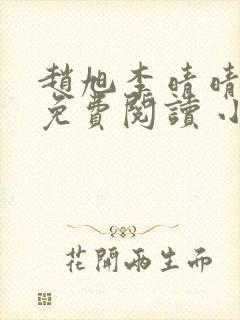 趙旭李晴晴
免費閱讀小
花開兩生而